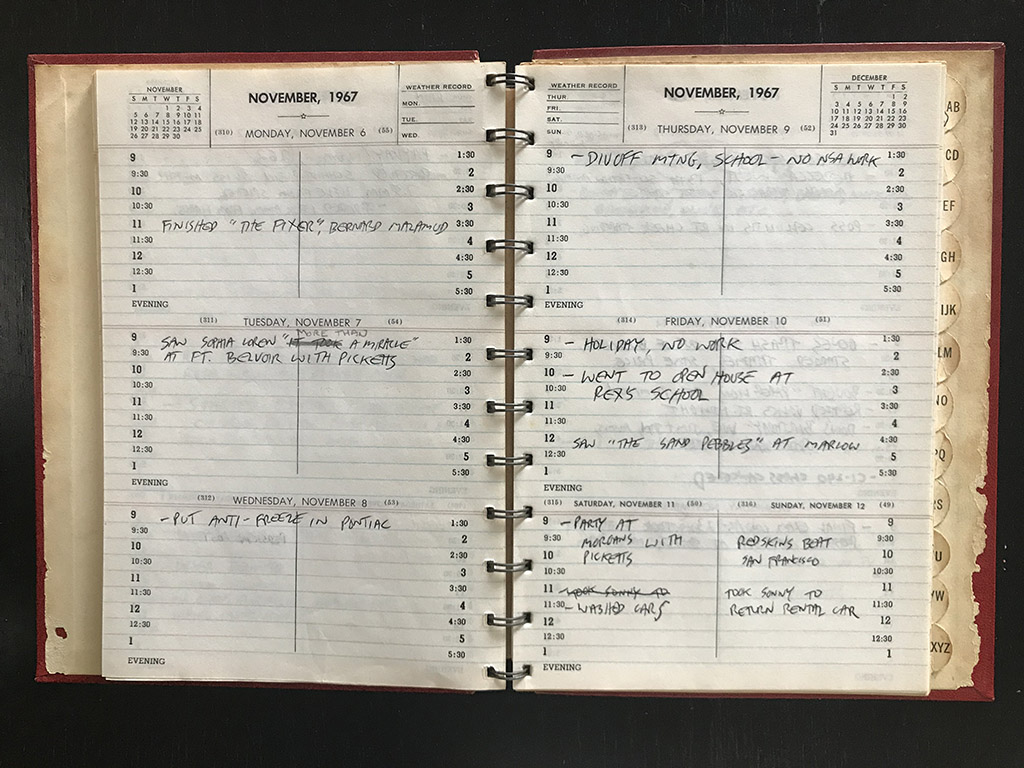 NOVEMBER
S M T W T F S
1 2 3 4
5 6 7 8 9 10 11
12 13 14 15 16 17 18
19 20 21 22 23 24 25
26 27 28 29 30
NOVEMBER, 1967
(310) MONDAY, NOVEMBER 6 (55)
WEATHER RECORD
MON.
TUE.
WED.
9 1:30
9:30 2
10 2:30
10:30 3
11 FINISHED "THE FIXER", BERNARD MALAMUD 3:30
11:30 4
12 4:30
12:30 5
1 5:30
EVENING
(311) TUESDAY, NOVEMBER 7 (54)
MORE THAN
9 SAW SOPHIA LOREN "IT TOOK A MIRACLE" 1:30
9:30 AT FT. BELVOIR WITH PICKETTS 2
10 2:30
10:30 3
11 3:30
11:30 4
12 4:30
12:30 5
1 5:30
EVENING
(312) WEDNESDAY, NOVEMBER 8 (53)
9 - PUT ANTI-FREEZE IN PONTIAC 1:30
9:30 2
10 2:30
10:30 3
11 3:30
11:30 4
12 4:30
12:30 5
1 5:30
EVENING
WEATHER RECORD
THUR
FRI.
SAT.
SUN.
NOVEMBER, 1967
(313) THURSDAY, NOVEMBER 9 (52)
DECEMBER
S M T W T F S
1 2
3 4 5 6 7 8 9
10 11 12 13 14 15 16
17 18 19 20 21 22 23
24 25 26 27 28 29 30
31
9 - DIVOFF MTNG, SCHOOL - NO NSA WORK 1:30
9:30 2
10 2:30
10:30 3
11 3:30
11:30 4
12 4:30
12:30 5
1 5:30
EVENING
(314) FRIDAY, NOVEMBER 10 (51)
9 - HOLIDAY, NO WORK 1:30
9:30 2
10 - WENT TO OPEN HOUSE AT 2:30
10:30 REX'S SCHOOL 3
11 3:30
11:30 4
12 SAW "THE SAND PEBBLES" AT MARLOW 4:30
12:30 5
1 5:30
EVENING
(315) SATURDAY, NOVEMBER 11 (50)
9 - PARTY AT
9:30 MORGANS WITH
10 PICKETTS
10:30
11 - TOOK SONNY TO
11:30 - WASHED CARS
12
12:30
1
EVENING
(316) SUNDAY, NOVEMBER 12 (49)
9
REDSKINS BEAT 9:30
SAN FRANCISCO 10
10:30
TOOK SONNY TO 11
RETURN RENTAL CAR 11:30
12
12:30
1
AB
CD
EF
GH
IJK
LM
NO
PQ
RS
U
XYZ